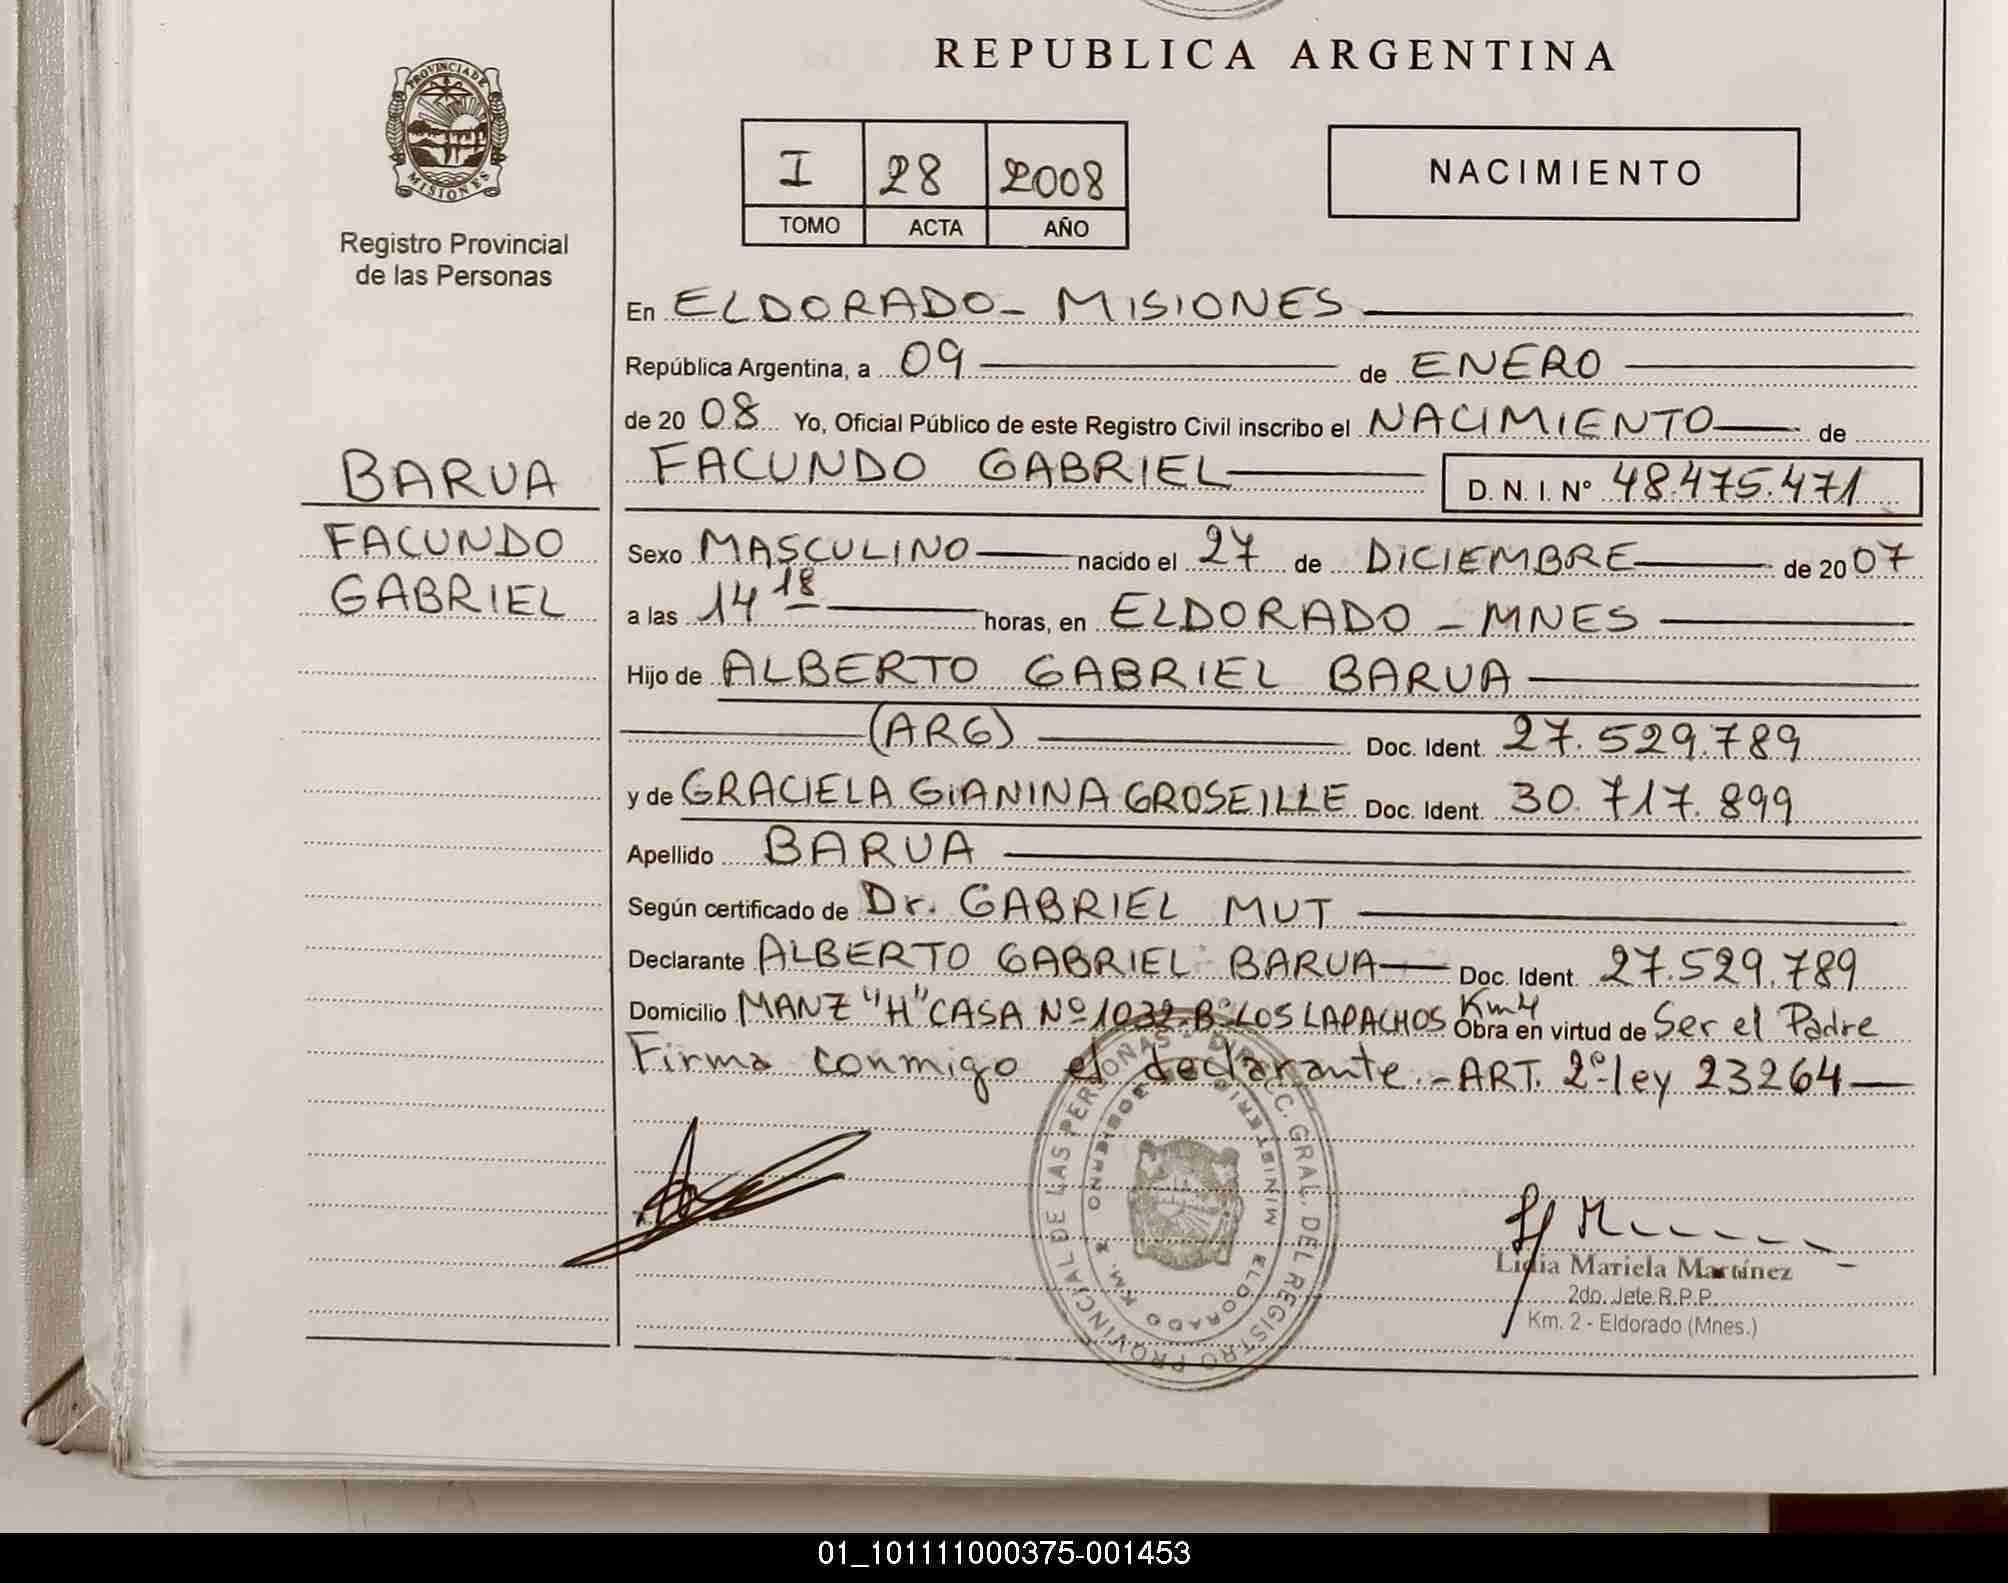 REPUBLICA ARGENTINA
PROVINCIA DE
MISIONES
Registro Provincial
de las Personas
I 28 2008
TOMO ACTA AÑO
NACIMIENTO
En ELDORADO - MISIONES
República Argentina, a 09 de ENERO
de 20 08 Yo, Oficial Público de este Registro Civil inscribo el NACIMIENTO de
FACUNDO GABRIEL D. N. I. Nº 48.475.471
BARUA
FACUNDO
GABRIEL
Sexo MASCULINO nacido el 27 de DICIEMBRE de 20 07
a las 14 18 horas, en ELDORADO - MNES
Hijo de ALBERTO GABRIEL BARUA
(ARG) Doc. Ident. 27.529.789
y de GRACIELA GIANINA GROSEILLE Doc. Ident. 30.717.899
Apellido BARUA
Según certificado de Dr. GABRIEL MUT
Declarante ALBERTO GABRIEL BARUA Doc. Ident. 27.529.789
Domicilio MANZ "H" CASA Nº 1032-Bº LOS LAPACHOS Km4 Obra en virtud de Ser el Padre
Firma conmigo el declarante.- ART. 2º- ley 23264
DIRECC. GRAL. DEL REGISTRO PROVINCIAL DE LAS PERSONAS -
MINISTERIO GOBIERNO
ELDORADO KM. 2
Lidia Mariela Martínez
2do. Jefe R.P.P.
Km. 2 - Eldorado (Mnes.)
01_101111000375-001453